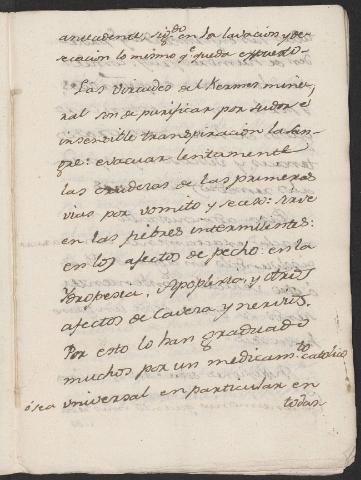 antecedente, sigdo en la lavacion y de-
secacion lo mismo qe queda expuesto.
Las virtudes del Kermes mine-
ral son de purificar por sudor e
insensible transpiración la San-
gre: evacuar lentamente
las crudezas de las primeras
vias por vomito y secess: sirve
en las fiebres intermitentes:
en los afectos de pecho: en la
Ydropesia, Apoplexia, y otros
afectos de Caveza y nervios.
Por esto lo han graduado
muchos por un medicamto catolico
ó sea universal en particular en
todas